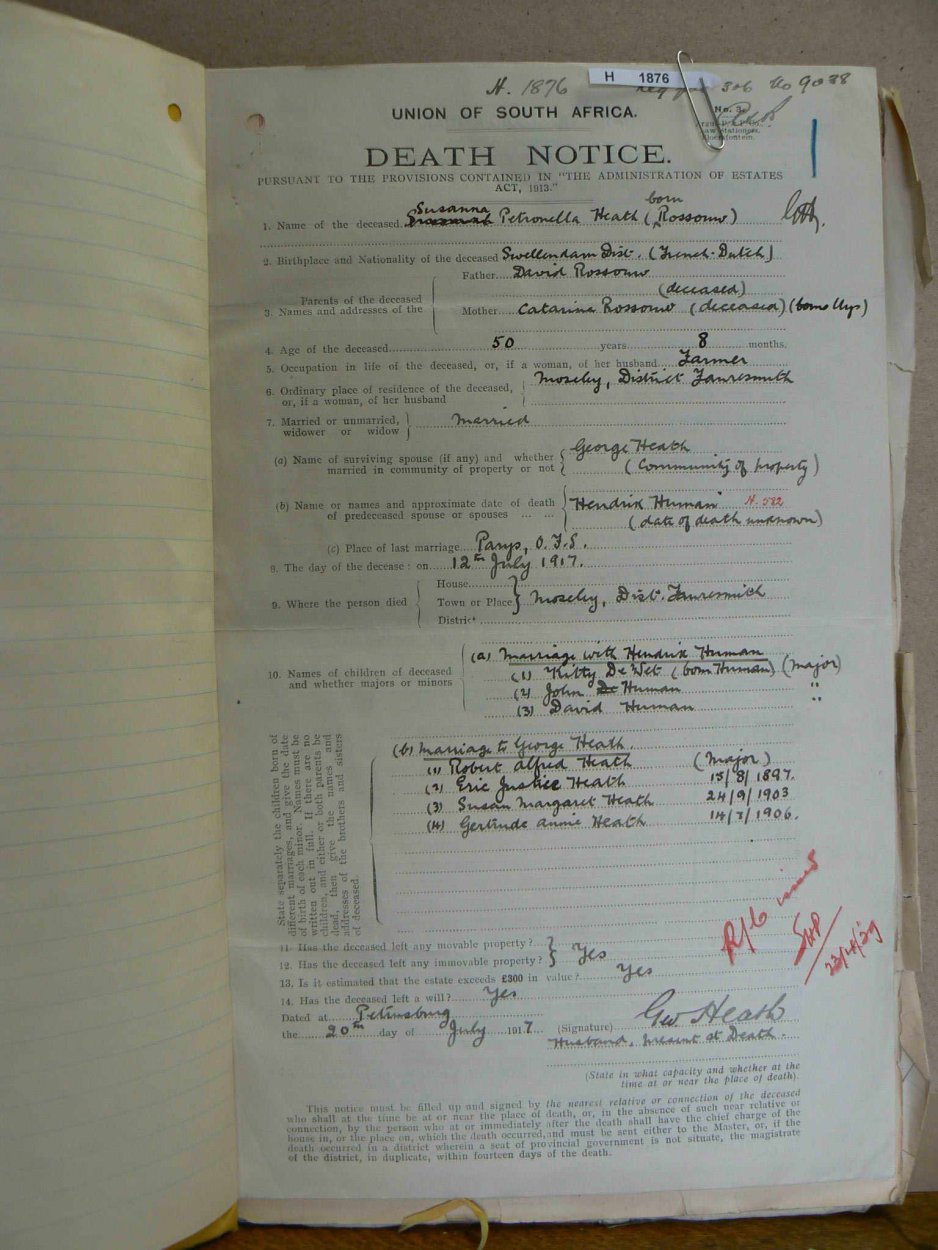 H. 1876
H 1876
306 No 9038
No. 3.
UNION OF SOUTH AFRICA.
DEATH NOTICE.
PURSUANT TO THE PROVISIONS CONTAINED IN "THE ADMINISTRATION OF ESTATES
ACT, 1913."
1. Name of the deceased Susanna Petronella Heath (born Rossouw)
2. Birthplace and Nationality of the deceased Swellendam Dist. (French-Dutch)
Father David Rossouw
(deceased)
Parents of the deceased
3. Names and addresses of the
Mother Catarina Rossouw (deceased) (born Uys)
4. Age of the deceased 50 years 8 months.
5. Occupation in life of the deceased, or, if a woman, of her husband Farmer
6. Ordinary place of residence of the deceased, Moseley, District Fauresmith
or, if a woman, of her husband
7. Married or unmarried, Married
widower or widow
(a) Name of surviving spouse (if any) and whether George Heath
married in community of property or not (Community of property)
(b) Name or names and approximate date of death Hendrik Human H. 582
of predeceased spouse or spouses ... ... (date of death unknown)
(c) Place of last marriage Parys, O.F.S.
8. The day of the decease: on 12th July 1917.
House
9. Where the person died Town or Place Moseley, Dist. Fauresmith
District
(a) Marriage with Hendrik Human
10. Names of children of deceased (1) Kitty De Wet (born Human) (Major)
and whether majors or minors (2) John Human "
(3) David Human "
State separately the children born of
different marriages, and give the date
of birth of each minor. Names must be
written out in full. If there are no
children, and either or both parents be
dead, then give the names and
addresses of the brothers and sisters
of deceased.
(b) Marriage to George Heath.
(1) Robert Alfred Heath (Major)
(2) Eric Justice Heath 15/8/1897.
(3) Susan Margaret Heath 24/9/1903
(4) Gertrude Annie Heath 14/7/1906.
11. Has the deceased left any movable property?
12. Has the deceased left any immovable property? Yes
13. Is it estimated that the estate exceeds £300 in value? Yes
14. Has the deceased left a will? Yes
Dated at Petrusburg
the 20th day of July 1917 (Signature) Geo Heath
Husband. Present at Death
(State in what capacity and whether at the
time at or near the place of death).
This notice must be filled up and signed by the nearest relative or connection of the deceased
who shall at the time be at or near the place of death, or, in the absence of such near relative or
connection, by the person who at or immediately after the death shall have the chief charge of the
house in, or the place on, which the death occurred, and must be sent either to the Master, or, if the
death occurred in a district wherein a seat of provincial government is not situate, the magistrate
of the district, in duplicate, within fourteen days of the death.